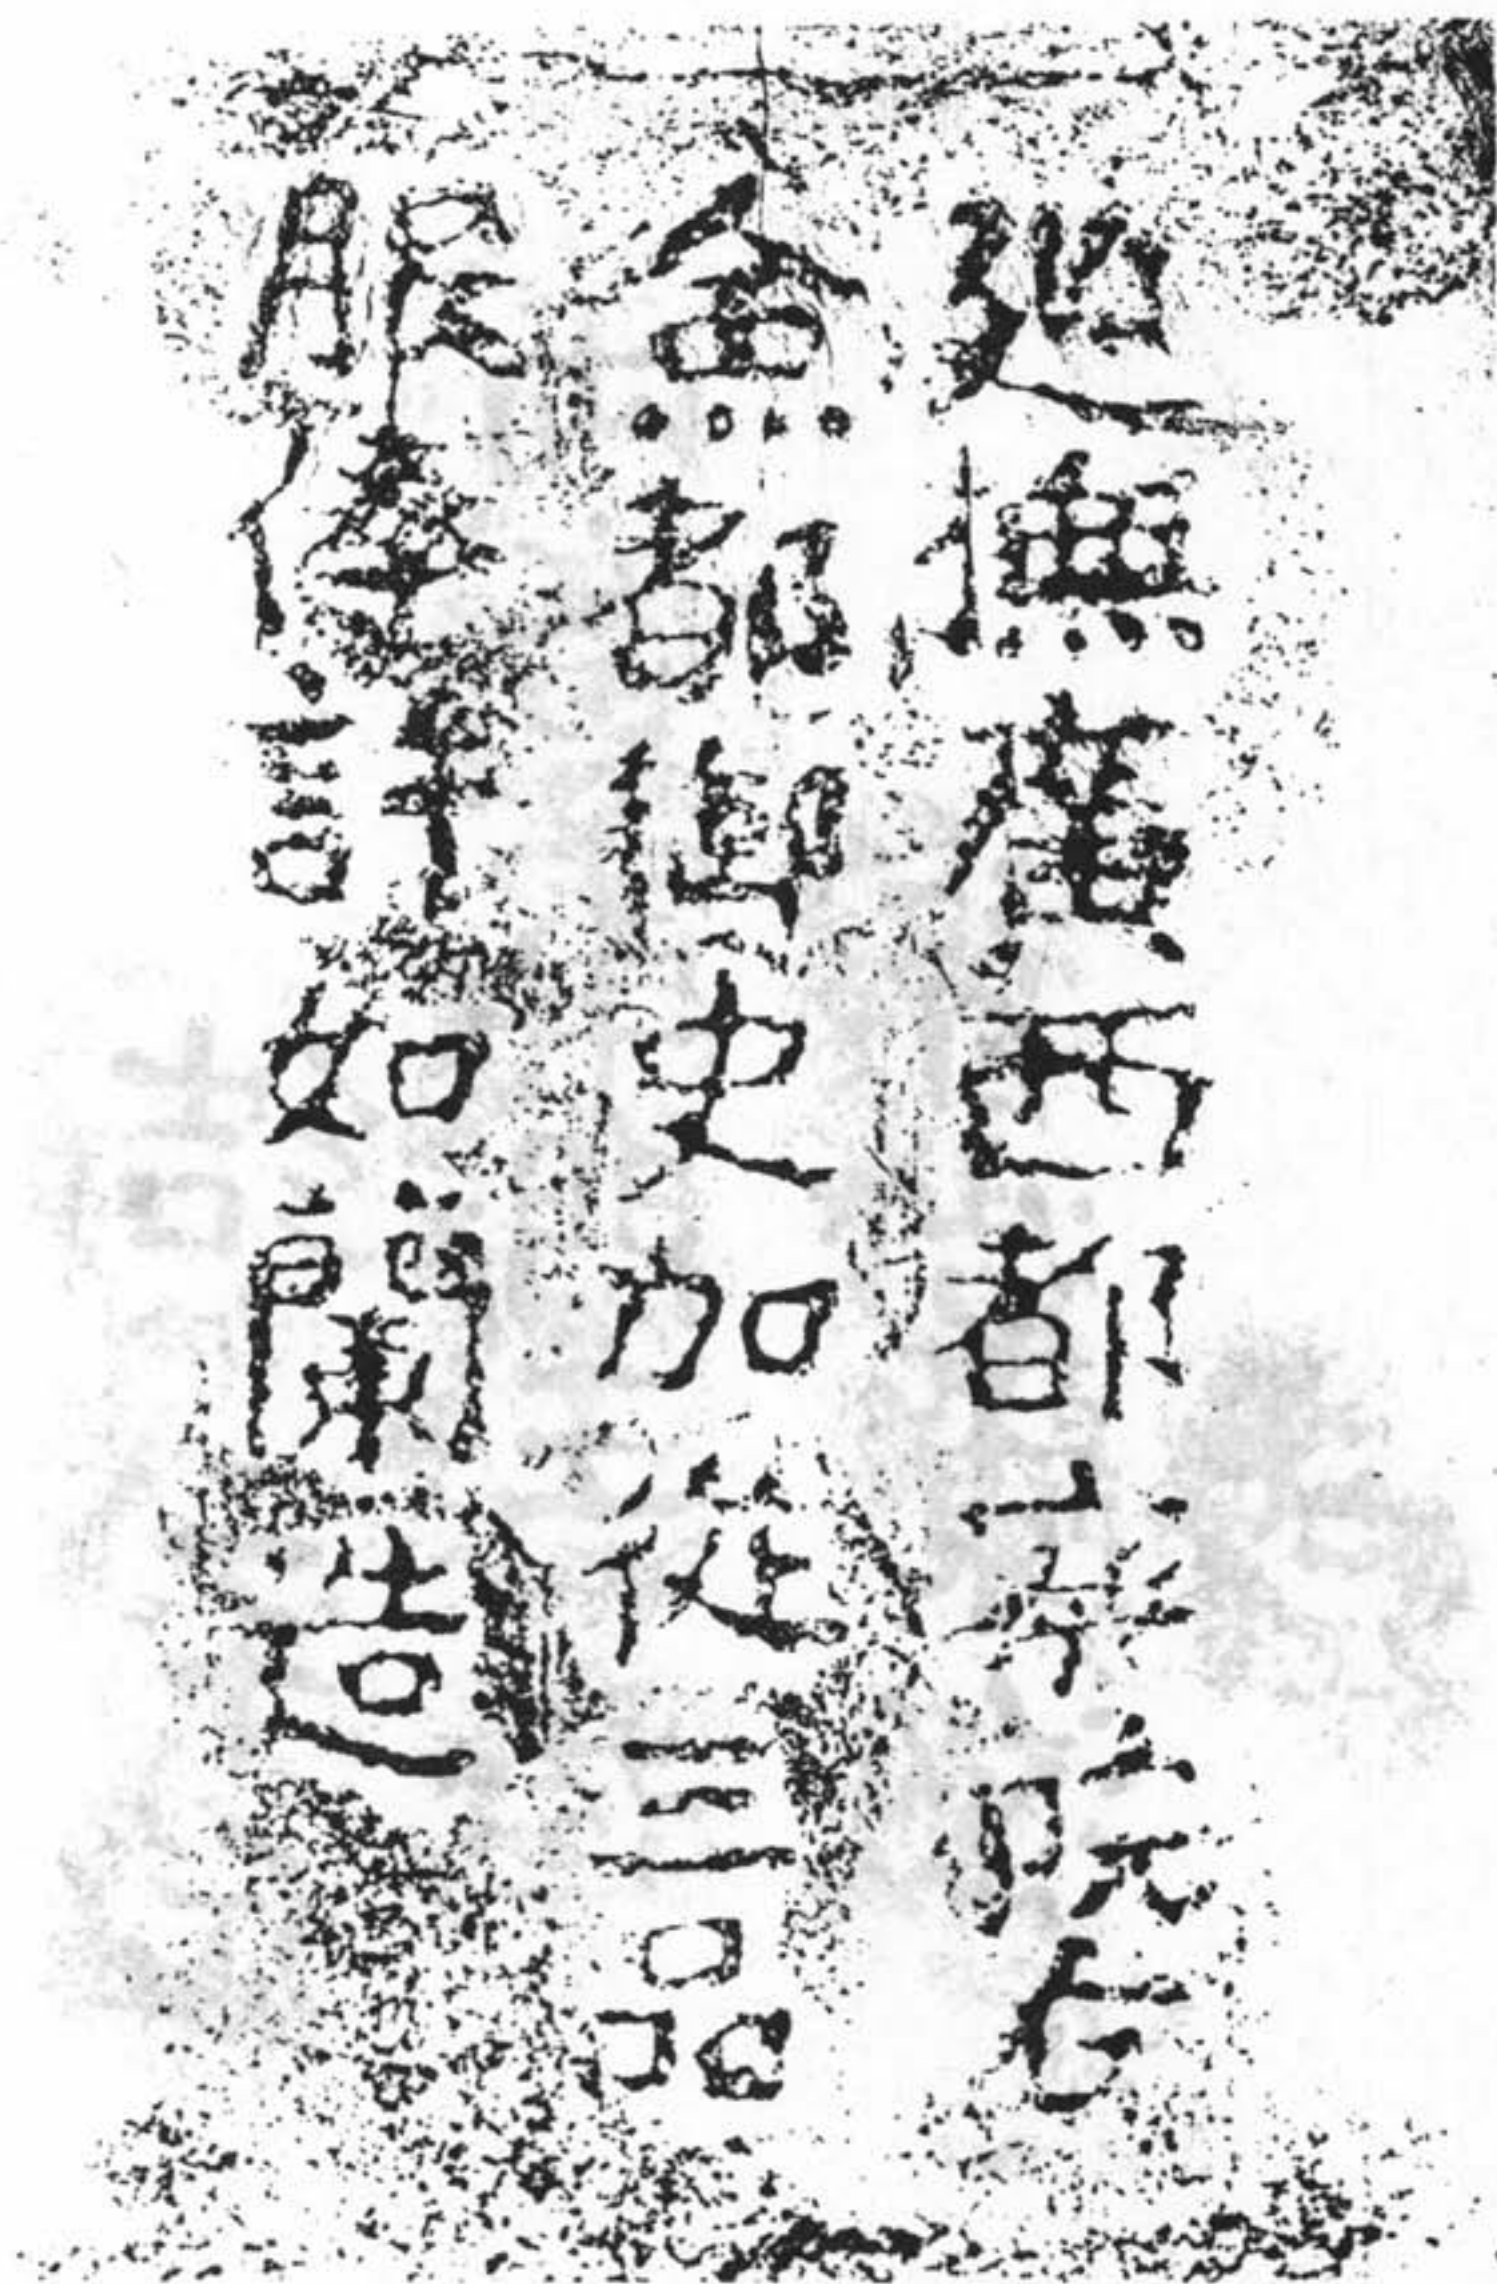 巡撫廣西都察院右
僉都御史加從三品
服俸許如蘭造